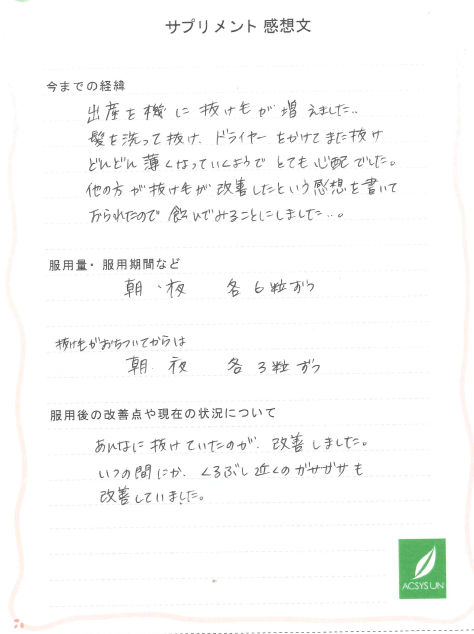 サプリメント 感想文
今までの経緯
出産を機に抜け毛が増えました..
髪を洗って抜け、ドライヤーをかけてまた抜け
どんどん薄くなっていくようでとても心配でした。
他の方が抜け毛が改善したという感想を書いて
おられたので飲んでみることにしました..。
服用量・服用期間など
朝・夜 各6粒ずつ
抜け毛がおちついてからは
朝・夜 各3粒ずつ
服用後の改善点や現在の状況について
あんなに抜けていたのが、改善しました。
いつの間にか、くるぶし近くのガサガサも
改善していました。
ACSYSUN